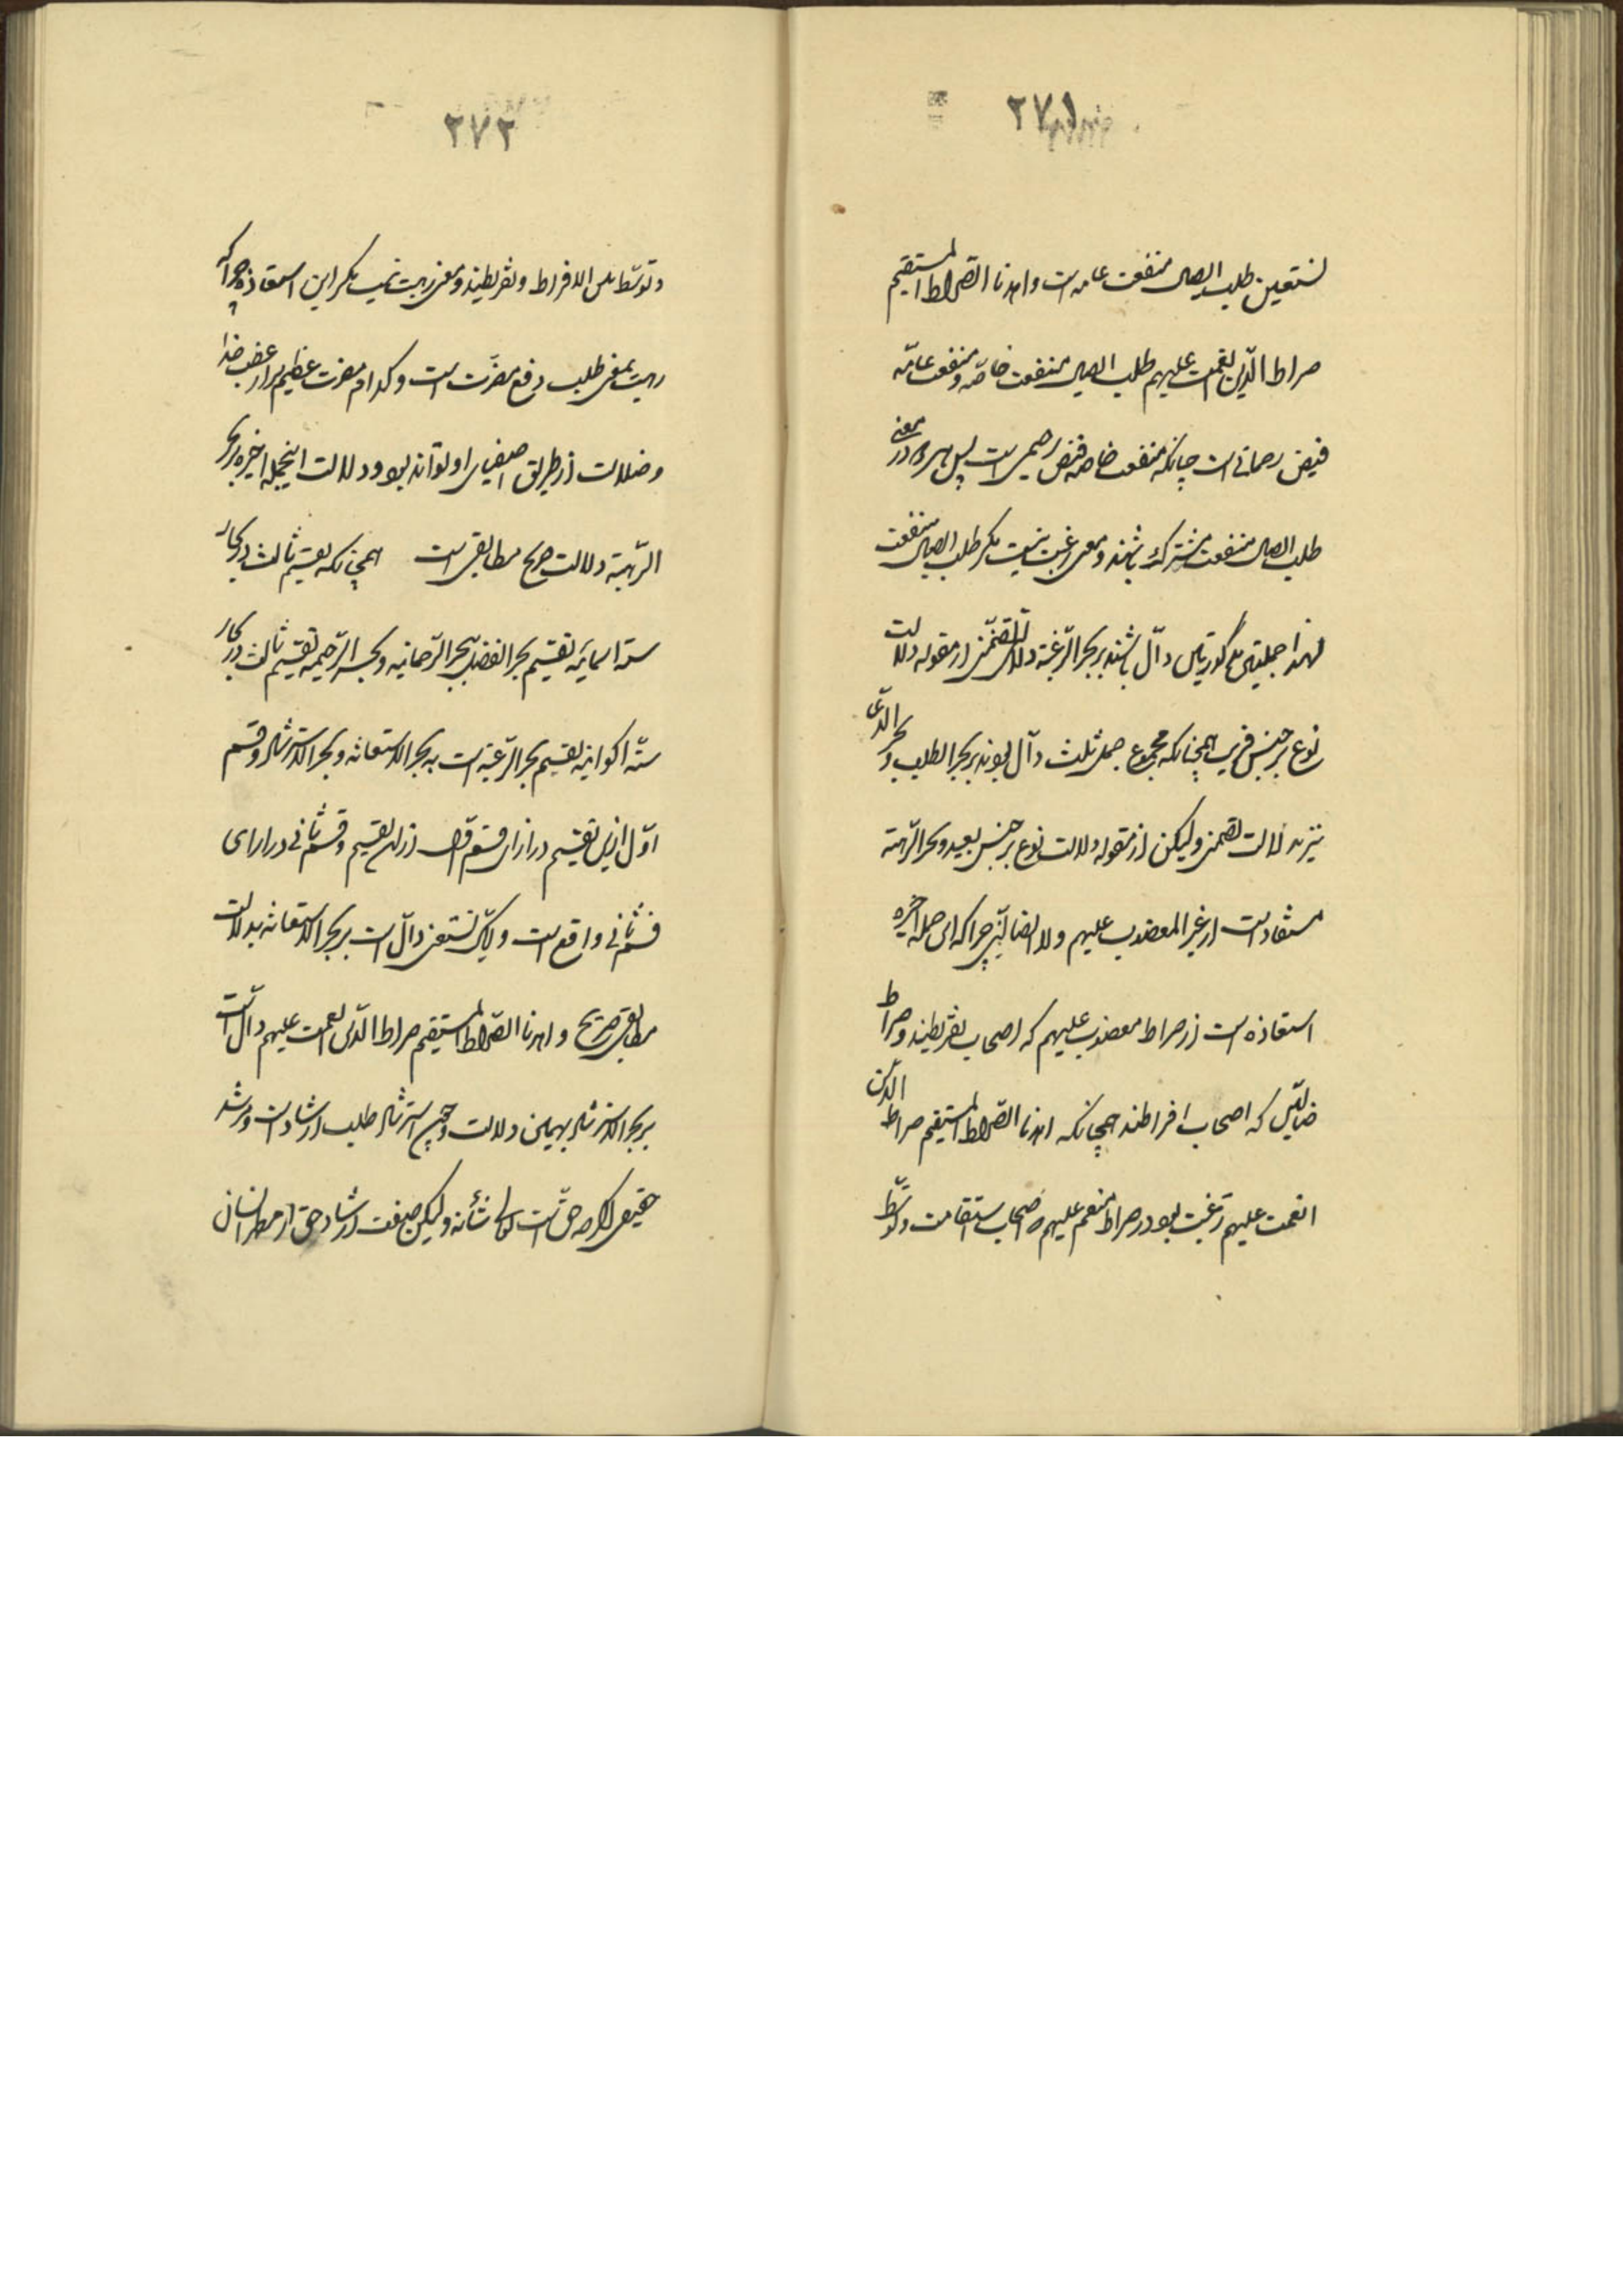 ۲۷۱
نستعین طلب ایصال منفعت عامه است و اهدنا الصراط المستقیم
صراط الذین انعمت علیهم طلب ایصال منفعت خاصّه و منفعت عامّه
فیض رحمانی است چنانکه منفعت خاصه فیض رحیمی است پس هر دو در معنی
طلب ایصال منفعت مشترک باشند و معنی رغبت نیست مگر طلب ایصال منفعت
لهذا جملتین مذکورتین دالّ باشند بر بحر الرّغبة دلالت تضمّنی از مقوله دلالت
نوع بر جنس قریب همچنانکه مجموع جمل ثلث دالّ بوند بر بحر الطلب و بحر الدّعا
نیز بدلالت تضمنی ولیکن از مقوله دلالت نوع بر جنس بعید و بحر الرّهبة
مستفاد است از غیر المغضوب علیهم ولا الضالّین چرا که این جمله اخیره
استعاذه است از صراط مغضوب علیهم که اصحاب تفریطند و صراط
ضالّین که اصحاب افراطند همچنانکه اهدنا الصّراط المستقیم صراط الّذین
انعمت علیهم رغبت بود در صراط منعم علیهم که اصحاب استقامت و توسّط
۲۷۲
و توسّط بین الافراط و تفریطند و معنی رهبت نیست مگر این استعاذه چرا که
رهبت بمعنی طلب دفع مضرّت است و کدام مضرت عظیم‌تر از غضب خدا
و ضلالت از طریق اصفیای او تواند بود و دلالت اینجمله اخیره بر بحر
الرّهبة دلالت صریح مطابقی است همچنانکه تقسیم ثالث در بحار
ستّه اسمائیه تقسیم بحر الفضل ببحر الرّحمانیه و بحر الرّحیمیه تقسیم ثالث در بحار
ستّه اکوانیه تقسیم بحر الرّغبة است به بحر الاستعانه و بحر الاسترشاد و قسم
اوّل ازین تقسیم در ازای قسم اوّل ازان تقسیم و قسم ثانی در ازای
قسم ثانی واقع است و ایّاک نستعین دالّ است بر بحر الاستعانه بدلالت
مطابقی صریح و اهدنا الصّراط المستقیم صراط الّذین انعمت علیهم دالّ است
بر بحر الاسترشاد بهمین دلالت و چون استرشاد طلب ارشاد است و مرشد
حقیقی اگرچه حقّ است تعالی شأنه ولیکن صفت ارشاد حق از مظهر انسان